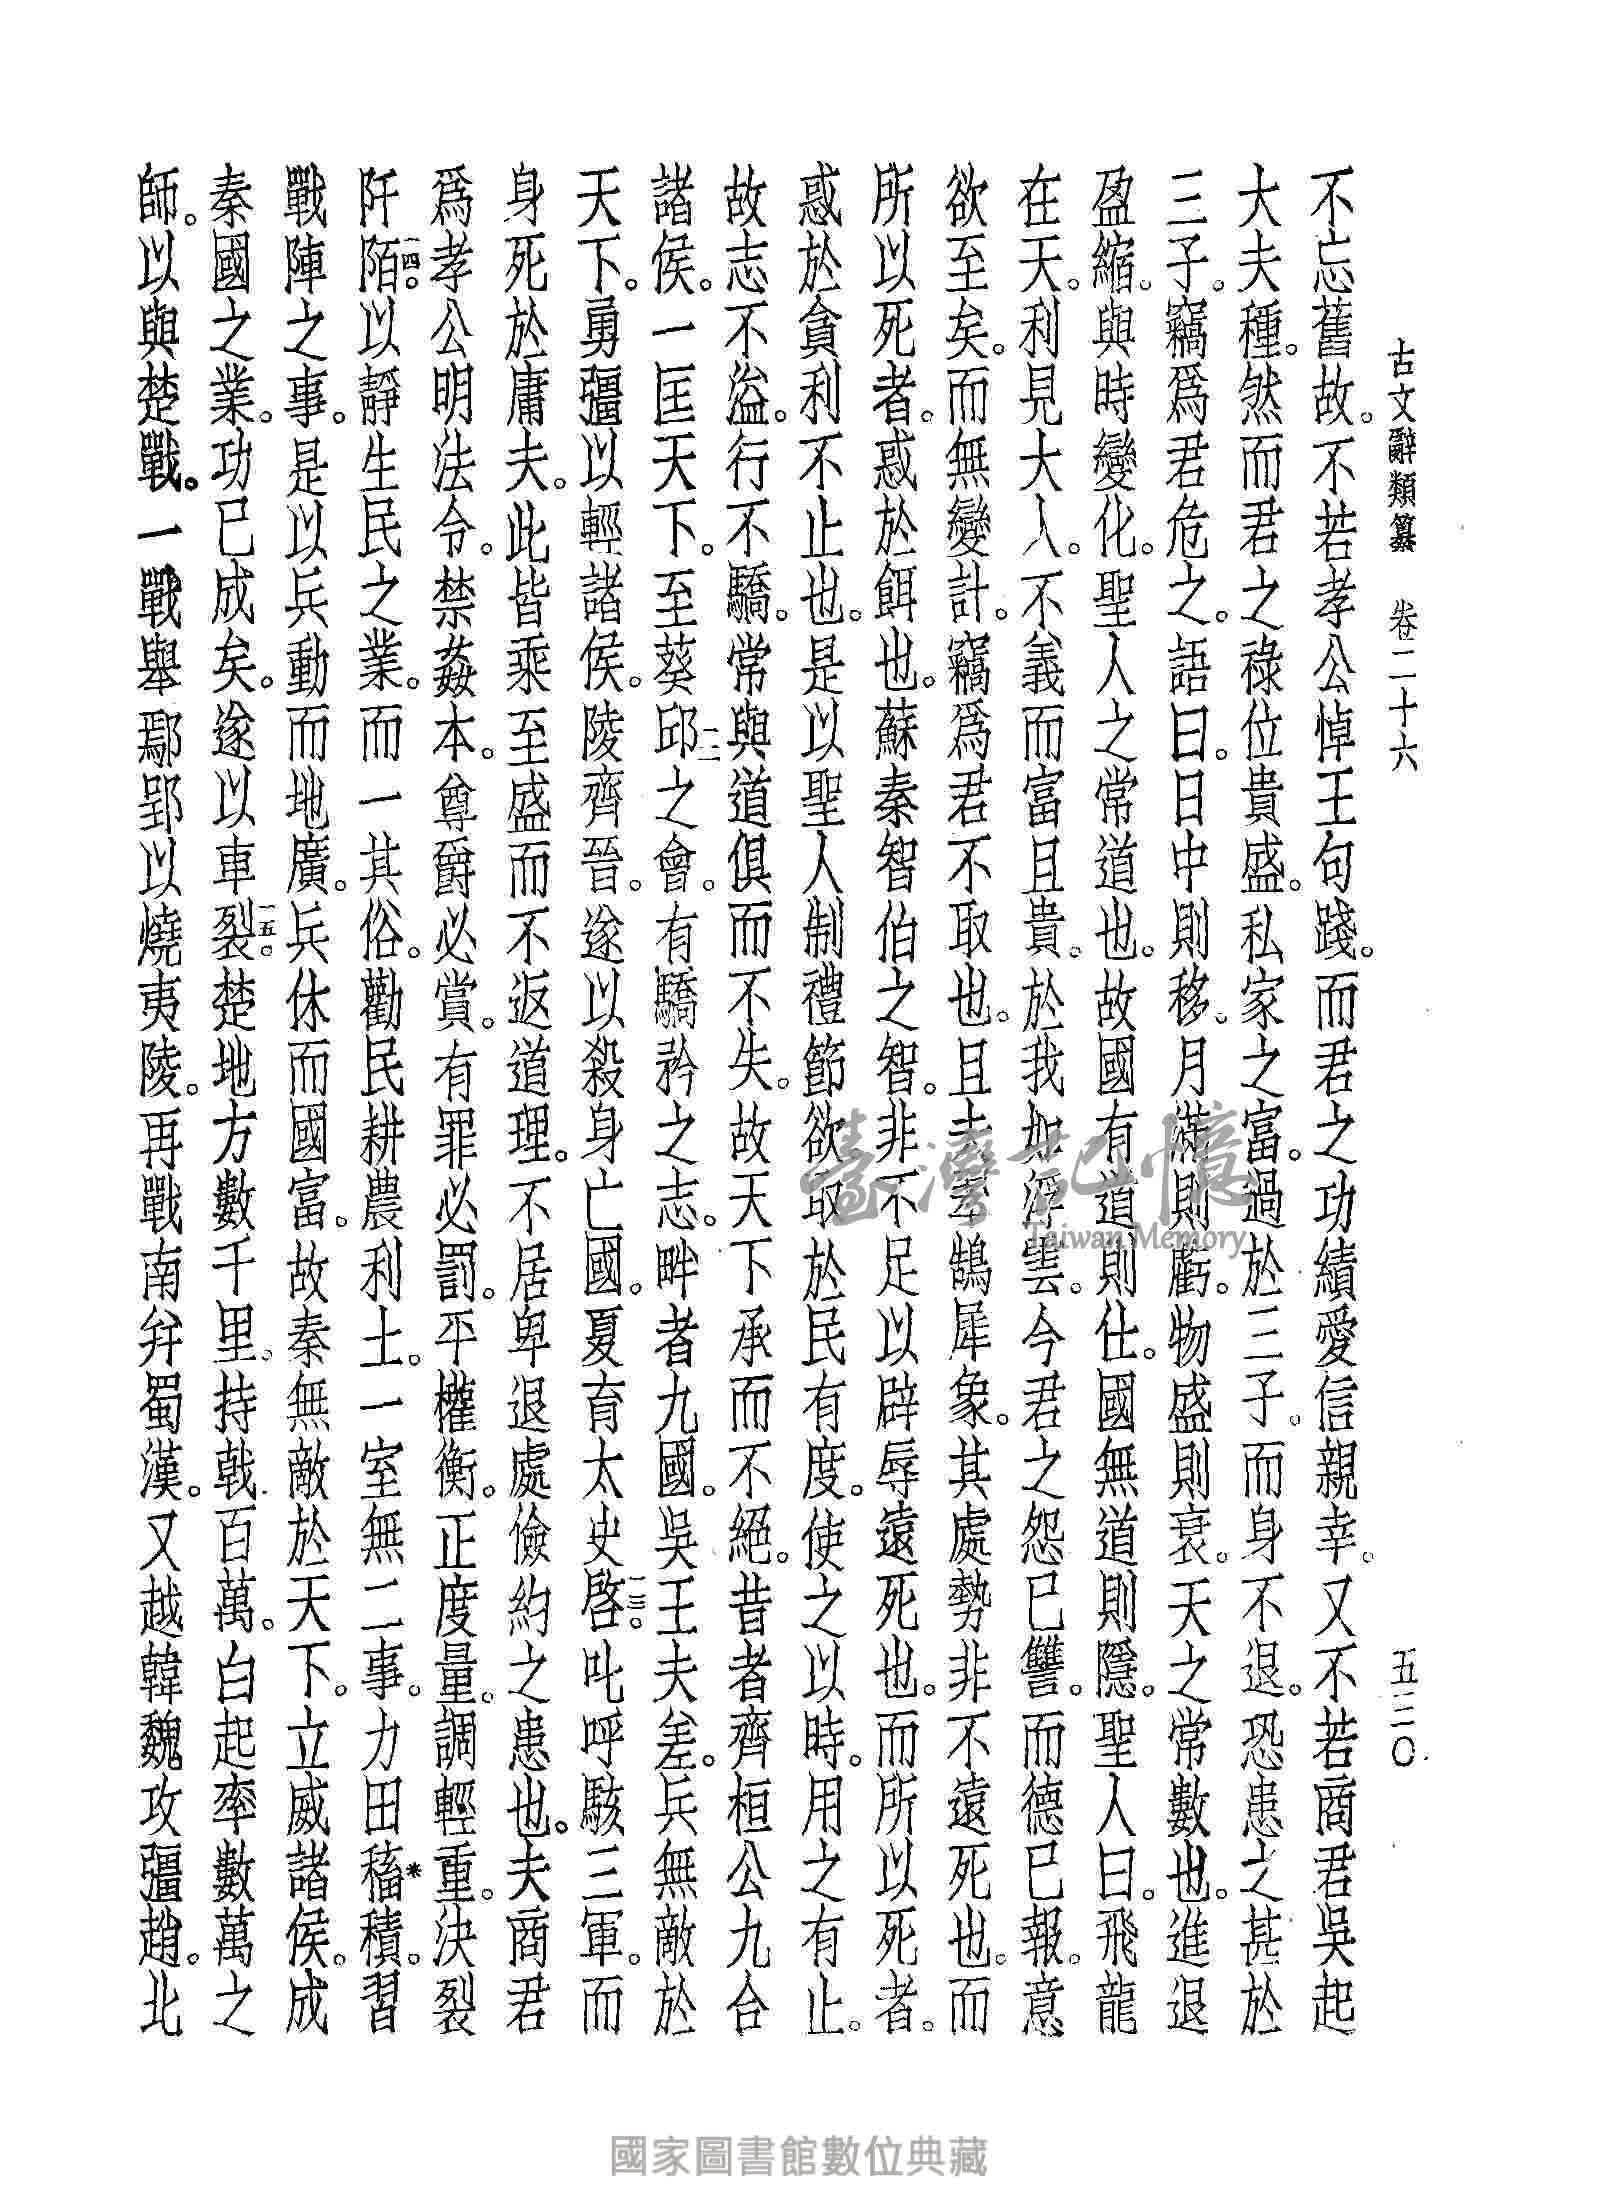 古文辭類纂　卷二十六　五三〇
不忘舊故。不若孝公悼王句踐。而君之功績愛信親幸。又不若商君吳起
大夫種。然而君之祿位貴盛。私家之富。過於三子。而身不退。恐患之甚於
三子。竊爲君危之。語曰。日中則移。月滿則虧。物盛則衰。天之常數也。進退
盈縮。與時變化。聖人之常道也。故國有道則仕。國無道則隱。聖人曰。飛龍
在天。利見大人。不義而富且貴。於我如浮雲。今君之怨已讐。而德已報。意
欲至矣。而無變計。竊爲君不取也。且夫翠鵠犀象。其處勢非不遠死也。而
所以死者。惑於餌也。蘇秦智伯之智。非不足以辟辱遠死也。而所以死者。
惑於貪利不止也。是以聖人制禮節欲取於民有度。使之以時。用之有止。
故志不溢。行不驕。常與道俱而不失。故天下承而不絕。昔者齊桓公九合
諸侯。一匡天下。至葵邱一二之會。有驕矜之志。畔者九國。吳王夫差。兵無敵於
天下。勇彊以輕諸侯。陵齊晉。遂以殺身亡國。夏育太史啓一三。叱呼駭三軍。而
身死於庸夫。此皆乘至盛而不返道理。不居卑退處儉約之患也。夫商君
爲孝公明法令。禁姦本。尊爵必賞。有罪必罰。平權衡。正度量。調輕重。決裂
阡陌一四。以靜生民之業。而一其俗。勸民耕農利土。一室無二事。力田稸*積。習
戰陣之事。是以兵動而地廣。兵休而國富。故秦無敵於天下。立威諸侯。成
秦國之業。功已成矣。遂以車裂一五。楚地方數千里。持戟百萬。白起率數萬之
師。以與楚戰。一戰舉鄢郢以燒夷陵。再戰南幷蜀漢。又越韓魏攻彊趙。北
臺灣記憶
Taiwan Memory
國家圖書館數位典藏